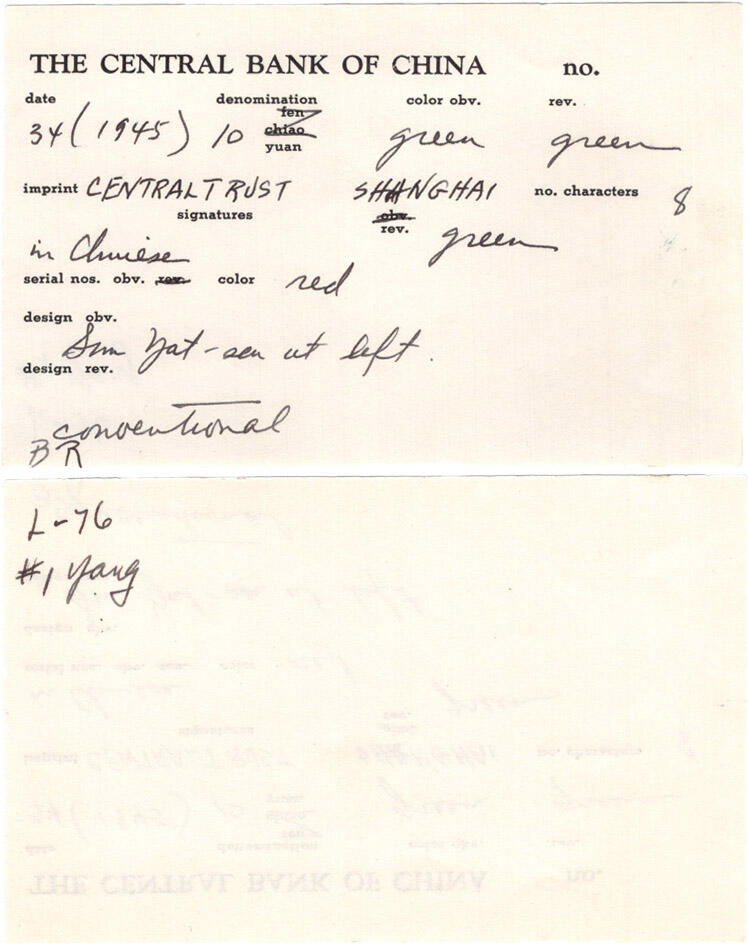 THE CENTRAL BANK OF CHINA no.
date denomination color obv. rev.
fen
34 (1945) 10 chiao green green
yuan
imprint CENTRAL TRUST SHANGHAI no. characters 8
signatures obv.
rev. green
in Chinese
serial nos. obv. rev. color red
design obv.
Sun Yat-sen at left.
design rev.
conventional
BR
L-76
#1 Yang